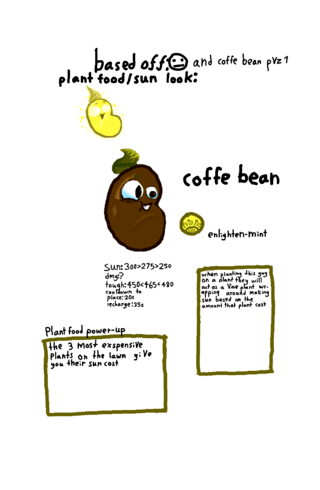 based off: and coffe bean pvz 1
plant food/sun look:
coffe bean
enlighten-mint
sun:300>275>250
dmg:?
tough:450<465<480
cooldown to
place:20s
recharge:35s
when planting this guy
on a plant they will
act as a vine plant wr-
apping around making
sun based on the
amount that plant cost
Plant food power-up
the 3 most exspensive
plants on the lawn give
you their sun cost